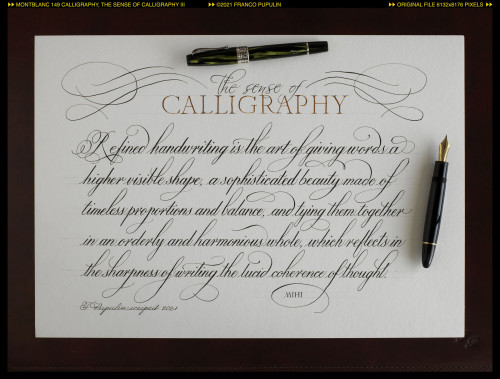 MONTBLANC 149 CALLIGRAPHY, THE SENSE OF CALLIGRAPHY III ©2021 FRANCO PUPULIN ORIGINAL FILE 6132x8176 PIXELS
The sense of
CALLIGRAPHY
Refined handwriting is the art of giving words a
higher visible shape, a sophisticated beauty made of
timeless proportions and balance, and tying them together
in an orderly and harmonious whole, which reflects in
the sharpness of writing the lucid coherence of thought.
MIHI
F Pupulin scripsit 2021